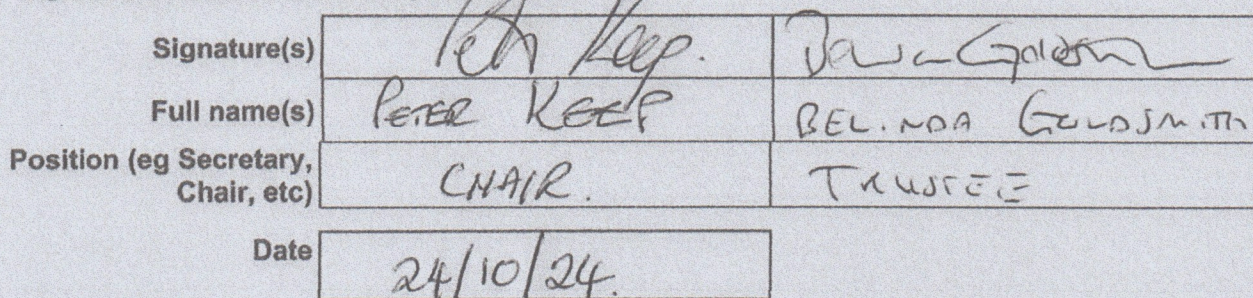 Signature(s) Peter Keep.
Full name(s) PETER KEEP BELINDA GOLDSMITH
Position (eg Secretary,
Chair, etc) CHAIR. TRUSTEE
Date 24/10/24.